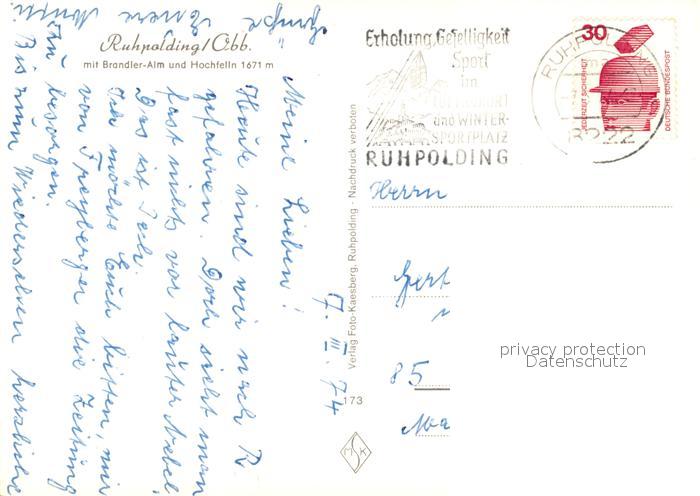 Ruhpolding/Obb.
mit Brandler-Alm und Hochfelln 1671 m
Erholung, Geselligkeit
Sport
im
LUFTKURORT
und WINTER-
SPORTPLATZ
RUHPOLDING
RUHPOLDING
8222
30
JEDERZEIT SICHERHEIT
DEUTSCHE BUNDESPOST
Verlag Foto-Kaesberg, Ruhpolding - Nachdruck verboten
173
17. III. 74
Meine Lieben!
Heute sind wir nach R.
gefahren. Doch sieht man
fast nichts vor lauter Nebel.
Das ist Pech.
Ich möchte Euch bitten, mir
von Freyberger die Zeitung
zu besorgen.
Bis zum Wiedersehen herzliche
Grüße Eure
Herrn
Gert
85
Ma
privacy protection
Datenschutz
MSK